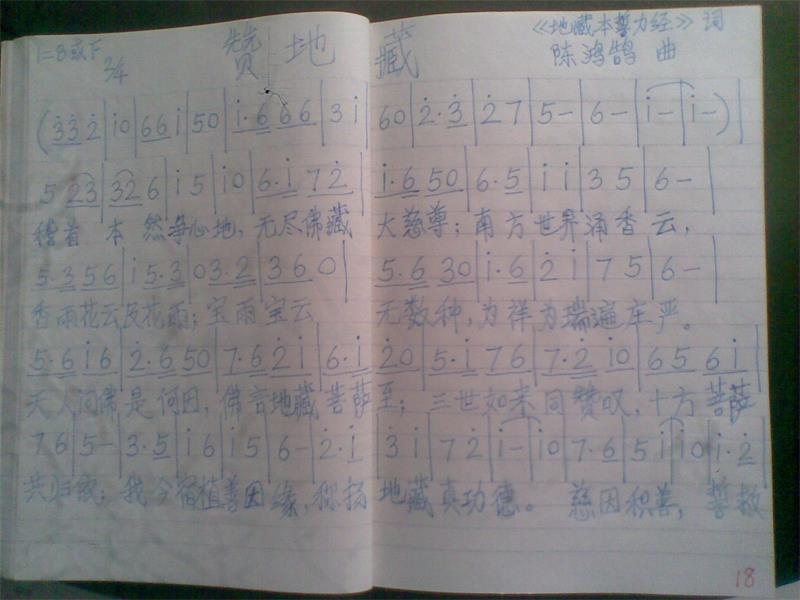 《地藏本誓力经》词
1=B或F 赞地藏
2/4 陈鸿鹄 曲
(3̇3̇2̇|i0|66i|50|i·666|3i|60|2̇·3̇|2̇7|5-|6-|i-|i-)|
523|326|i5|i0|6·i72̇|i·650|6·5|ii|35|6-|
稽首本然净心地,无尽佛藏大慈尊;南方世界涌香云,
5·356|i5·3|03·2|360|5·630|i·6|2̇i|75|6-|
香雨花云及花雨;宝雨宝云无数种,为祥为瑞遍庄严。
5·6i6|2̇·650|7·62̇i|6·i2̇0|5·i76|7·2̇i0|656i|
天人问佛是何因,佛言地藏菩萨至;三世如来同赞叹,十方菩萨
76|5-|3·5|i6|i5|6-|2̇·i|3̇i|72̇|i-|i0|7·6|5i|i0|i·2̇|
共归依;我今宿植善因缘,称扬地藏真功德。慈因积善,誓救
18